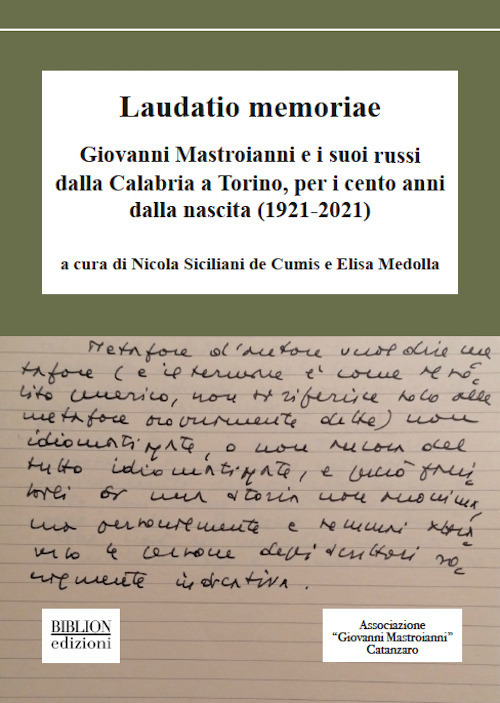 Laudatio memoriae
Giovanni Mastroianni e i suoi russi
dalla Calabria a Torino, per i cento anni
dalla nascita (1921-2021)
a cura di Nicola Siciliani de Cumis e Elisa Medolla
Metafore d'autore vuol dire me
tafore (e il termine è come
generico, non si riferisce solo alle
metafore propriamente dette) non
idiomatizzate, o non ancora del
tutto idiomatizzate, e perciò
di una storia non anonima,
ma personalmente e
le persone degli scrittori
indicativa.
BIBLION
edizioni
Associazione
"Giovanni Mastroianni"
Catanzaro